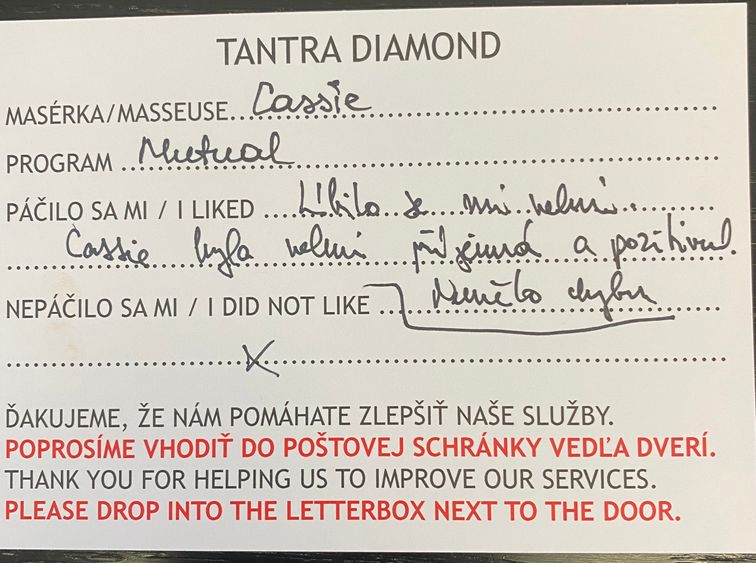 TANTRA DIAMOND
MASÉRKA/MASSEUSE...Cassie
PROGRAM ...Mutual
PÁČILO SA MI / I LIKED ...Líbilo se mi velmi.
Cassie byla velmi příjemná a pozitivní.
NEPÁČILO SA MI / I DID NOT LIKE ...Nemělo chybu
X
ĎAKUJEME, ŽE NÁM POMÁHATE ZLEPŠIŤ NAŠE SLUŽBY.
POPROSÍME VHODIŤ DO POŠTOVEJ SCHRÁNKY VEDĽA DVERÍ.
THANK YOU FOR HELPING US TO IMPROVE OUR SERVICES.
PLEASE DROP INTO THE LETTERBOX NEXT TO THE DOOR.